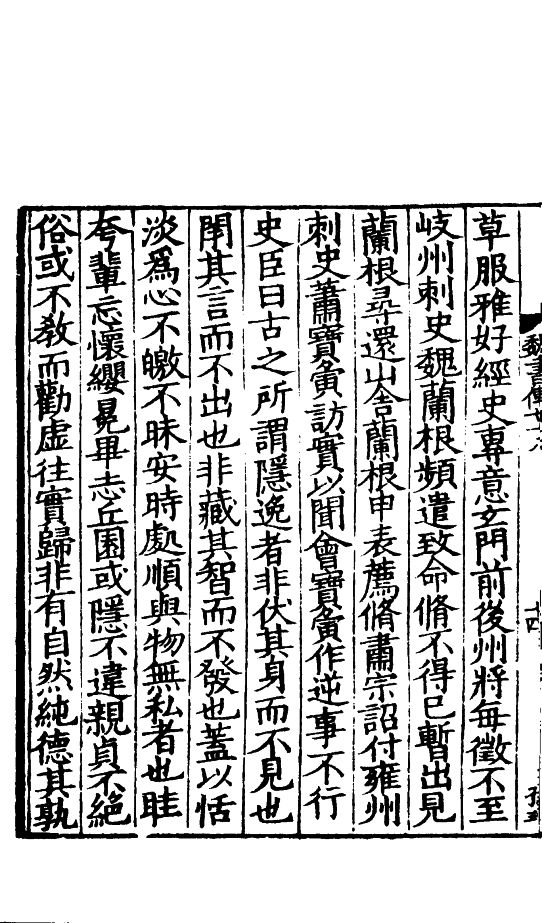 草服雅好經史專意玄門前後州將每徵不至
岐州刺史魏蘭根頻遣致命脩不得已暫出見
蘭根尋還山舍蘭根申表薦脩肅宗詔付雍州
刺史蕭寶夤訪實以聞會寶夤作逆事不行
史臣曰古之所謂隱逸者非伏其身而不見也
閉其言而不出也非藏其智而不發也蓋以恬
淡爲心不皦不昧安時處順與物無私者也眭
夸輩忘懷纓冕畢志丘園或隱不違親貞不絕
俗或不教而勸虛往實歸非有自然純德其孰